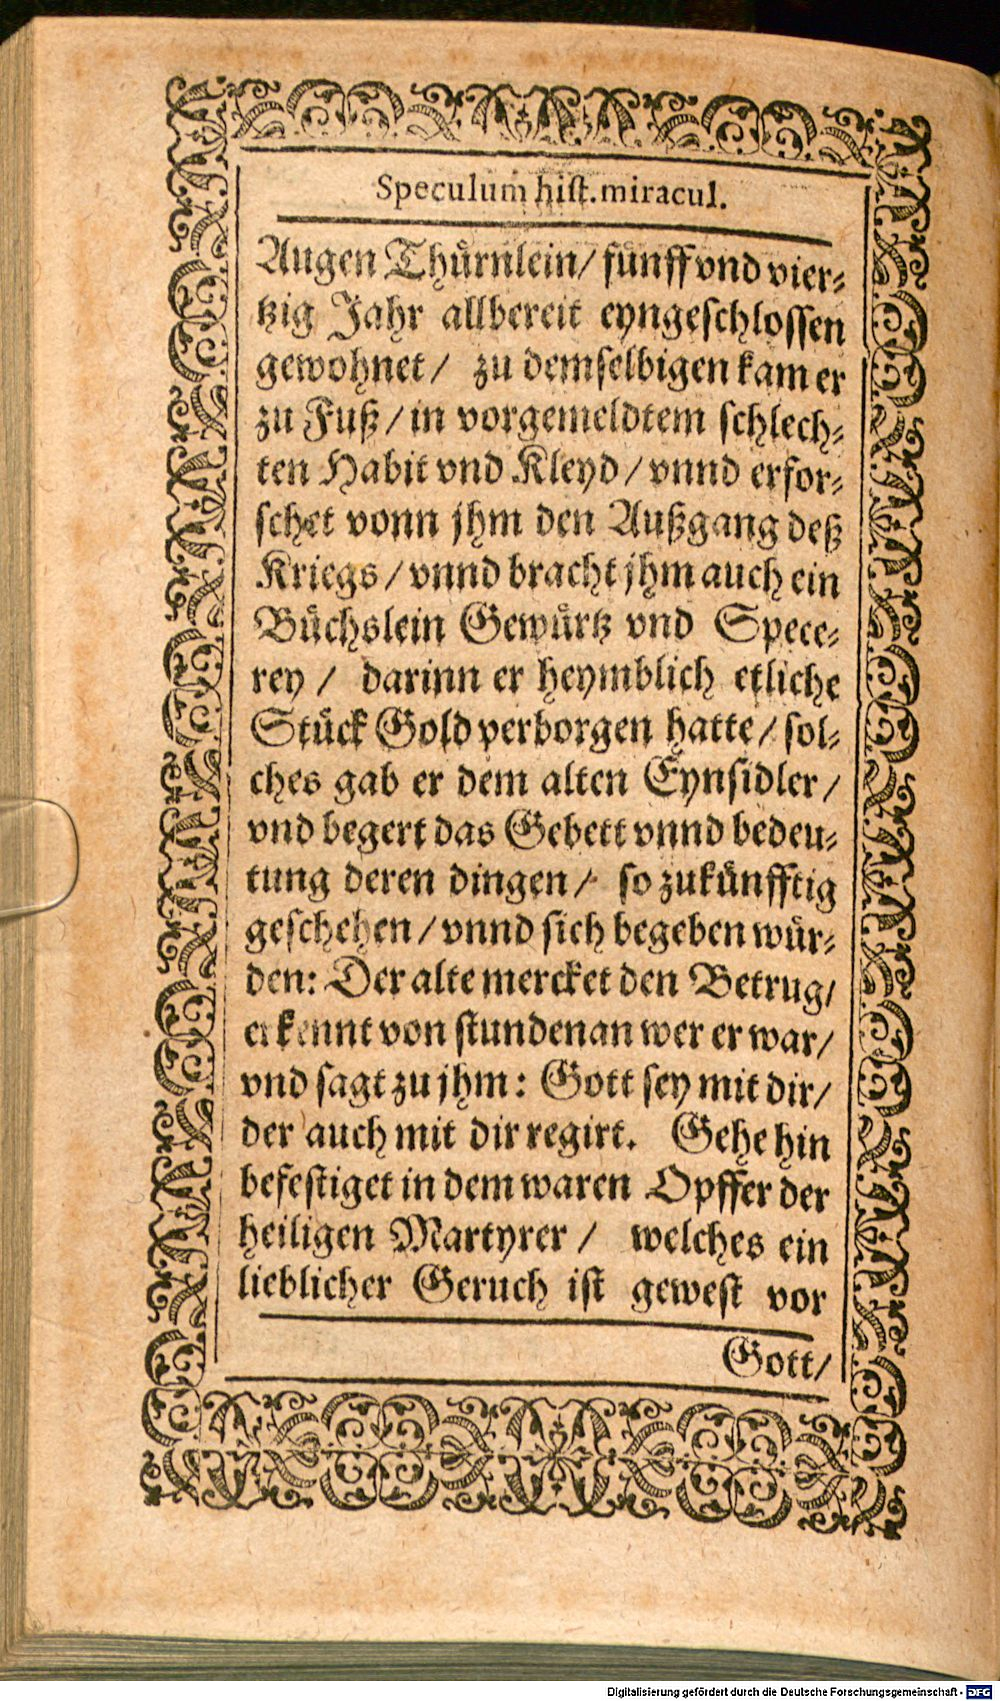 Speculum hist. miracul.
Augen Thuͤrnlein/ fuͤnff vnd vier⸗
tzig Jahr allbereit eyngeschlossen
gewohnet/ zu demselbigen kam er
zu Fuß/ in vorgemeldtem schlech⸗
ten Habit vnd Kleyd/ vnnd erfor⸗
schet vonn jhm den Außgang deß
Kriegs/ vnnd bracht jhm auch ein
Buͤchslein Gewuͤrtz vnd Spece⸗
rey/ darinn er heymblich etliche
Stuͤck Gold verborgen hatte/ sol⸗
ches gab er dem alten Eynsidler/
vnd begert das Gebett vnnd bedeu⸗
tung deren dingen/ so zukuͤnfftig
geschehen/ vnnd sich begeben wuͤr⸗
den: Der alte mercket den Betrug/
erkennt von stundenan wer er war/
vnd sagt zu jhm: Gott sey mit dir/
der auch mit dir regirt. Gehe hin
befestiget in dem waren Opffer der
heiligen Martyrer/ welches ein
lieblicher Geruch ist gewest vor
Gott/
Digitalisierung gefördert durch die Deutsche Forschungsgemeinschaft - DFG